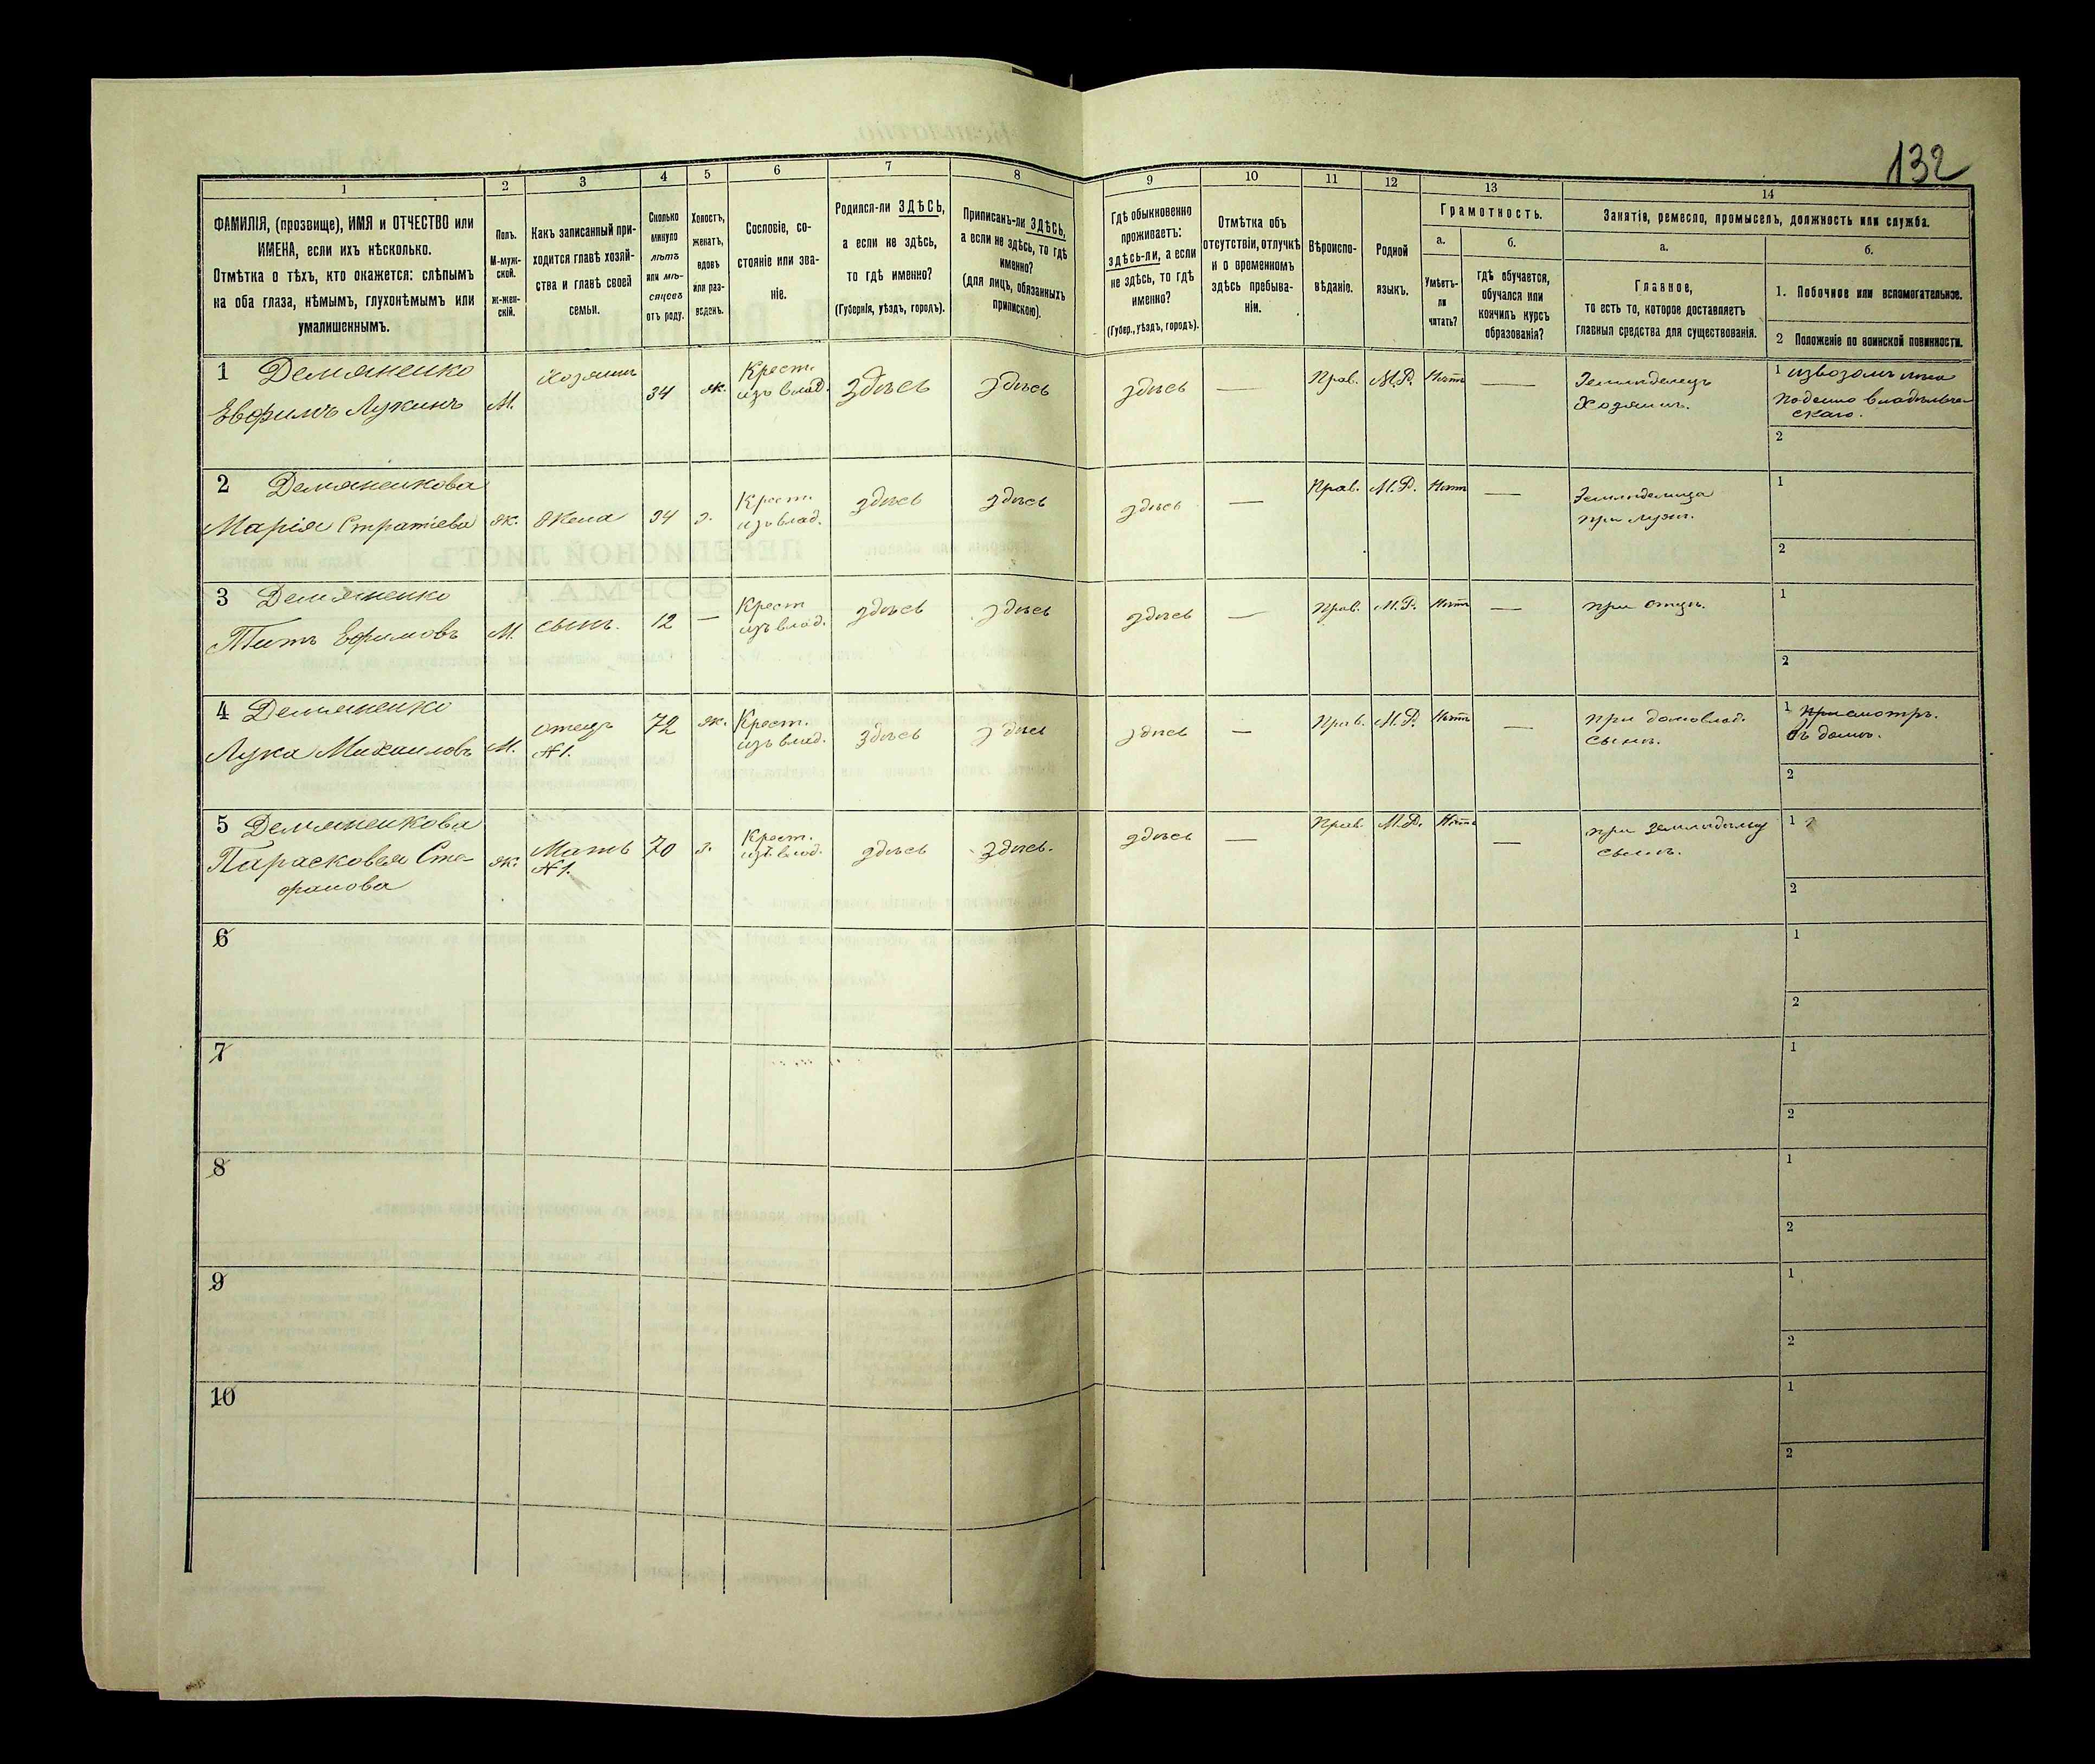 132
1
2
3
4
5
6
7
8
9
10
11
12
13
14
ФАМИЛІЯ, (прозвище), ИМЯ и ОТЧЕСТВО или
ИМЕНА, если ихъ нѣсколько.
Отмѣтка о тѣхъ, кто окажется: слѣпымъ
на оба глаза, нѣмымъ, глухонѣмымъ или
умалишеннымъ.
Полъ.
М-муж-
ской.
Ж-жен-
скій.
Какъ записанный при-
ходится главѣ хозяй-
ства и главѣ своей
семьи.
Сколько
минуло
лѣтъ
или мѣ-
сяцевъ
отъ роду.
Холостъ,
женатъ,
вдовъ
или раз-
веденъ.
Сословіе, со-
стояніе или зва-
ніе.
Родился-ли ЗДѢСЬ,
а если не здѣсь,
то гдѣ именно?
(Губернія, уѣздъ, городъ).
Приписанъ-ли ЗДѢСЬ,
а если не здѣсь, то гдѣ
именно?
(для лицъ, обязанныхъ
припискою).
Гдѣ обыкновенно
проживаетъ:
здѣсь-ли, а если
не здѣсь, то гдѣ
именно?
(Губер., уѣздъ, городъ).
Отмѣтка объ
отсутствіи, отлучкѣ
и о временномъ
здѣсь пребыва-
ніи.
Вѣроиспо-
вѣданіе.
Родной
языкъ.
Грамотность.
а.
Умѣетъ-
ли
читать?
б.
гдѣ обучается,
обучался или
кончилъ курсъ
образованія?
Занятія, ремесло, промыселъ, должность или служба.
а.
Главное,
то есть то, которое доставляетъ
главныя средства для существованія.
б.
1. Побочное или вспомогательное.
2 Положеніе по воинской повинности.
1 Демяненко
Евфимъ Лукинъ
М.
Хозяинъ
34
ж.
Крест.
изъ влад.
Здѣсь
здѣсь
здѣсь
—
Прав.
М.Р.
Нѣтъ
—
Земледѣлецъ
Хозяинъ.
1 извозомъ
2
2 Демяненкова
Марія Стратіева
ж.
Жена
34
з.
Крест.
изъ влад.
здѣсь
здѣсь
здѣсь
—
Прав.
М.Р.
Нѣтъ
—
Земледѣлица
при мужѣ.
1
2
3 Демяненко
Титъ Ефимовъ
М.
сынъ.
12
—
Крест
изъ влад.
здѣсь
здѣсь
здѣсь
—
Прав.
М.Р.
Нѣтъ
—
при отцѣ.
1
2
4 Демяненко
Лука Михаиловъ
М.
отецъ
№1.
72
ж.
Крест.
изъ влад.
Здѣсь
здѣсь
здѣсь
—
Прав.
М.Р.
Нѣтъ
—
при домовлад.
сынѣ.
1 Присмотръ.
въ домѣ.
2
5 Демяненкова
Парасковея Сте-
фанова
ж.
Мать
№1.
70
з.
Крест.
изъ влад.
здѣсь
здѣсь.
здѣсь
—
Прав.
М.Р.
Нѣтъ
—
при
сынѣ.
1
2
6
1
2
7
1
2
8
1
2
9
1
2
10
1
2